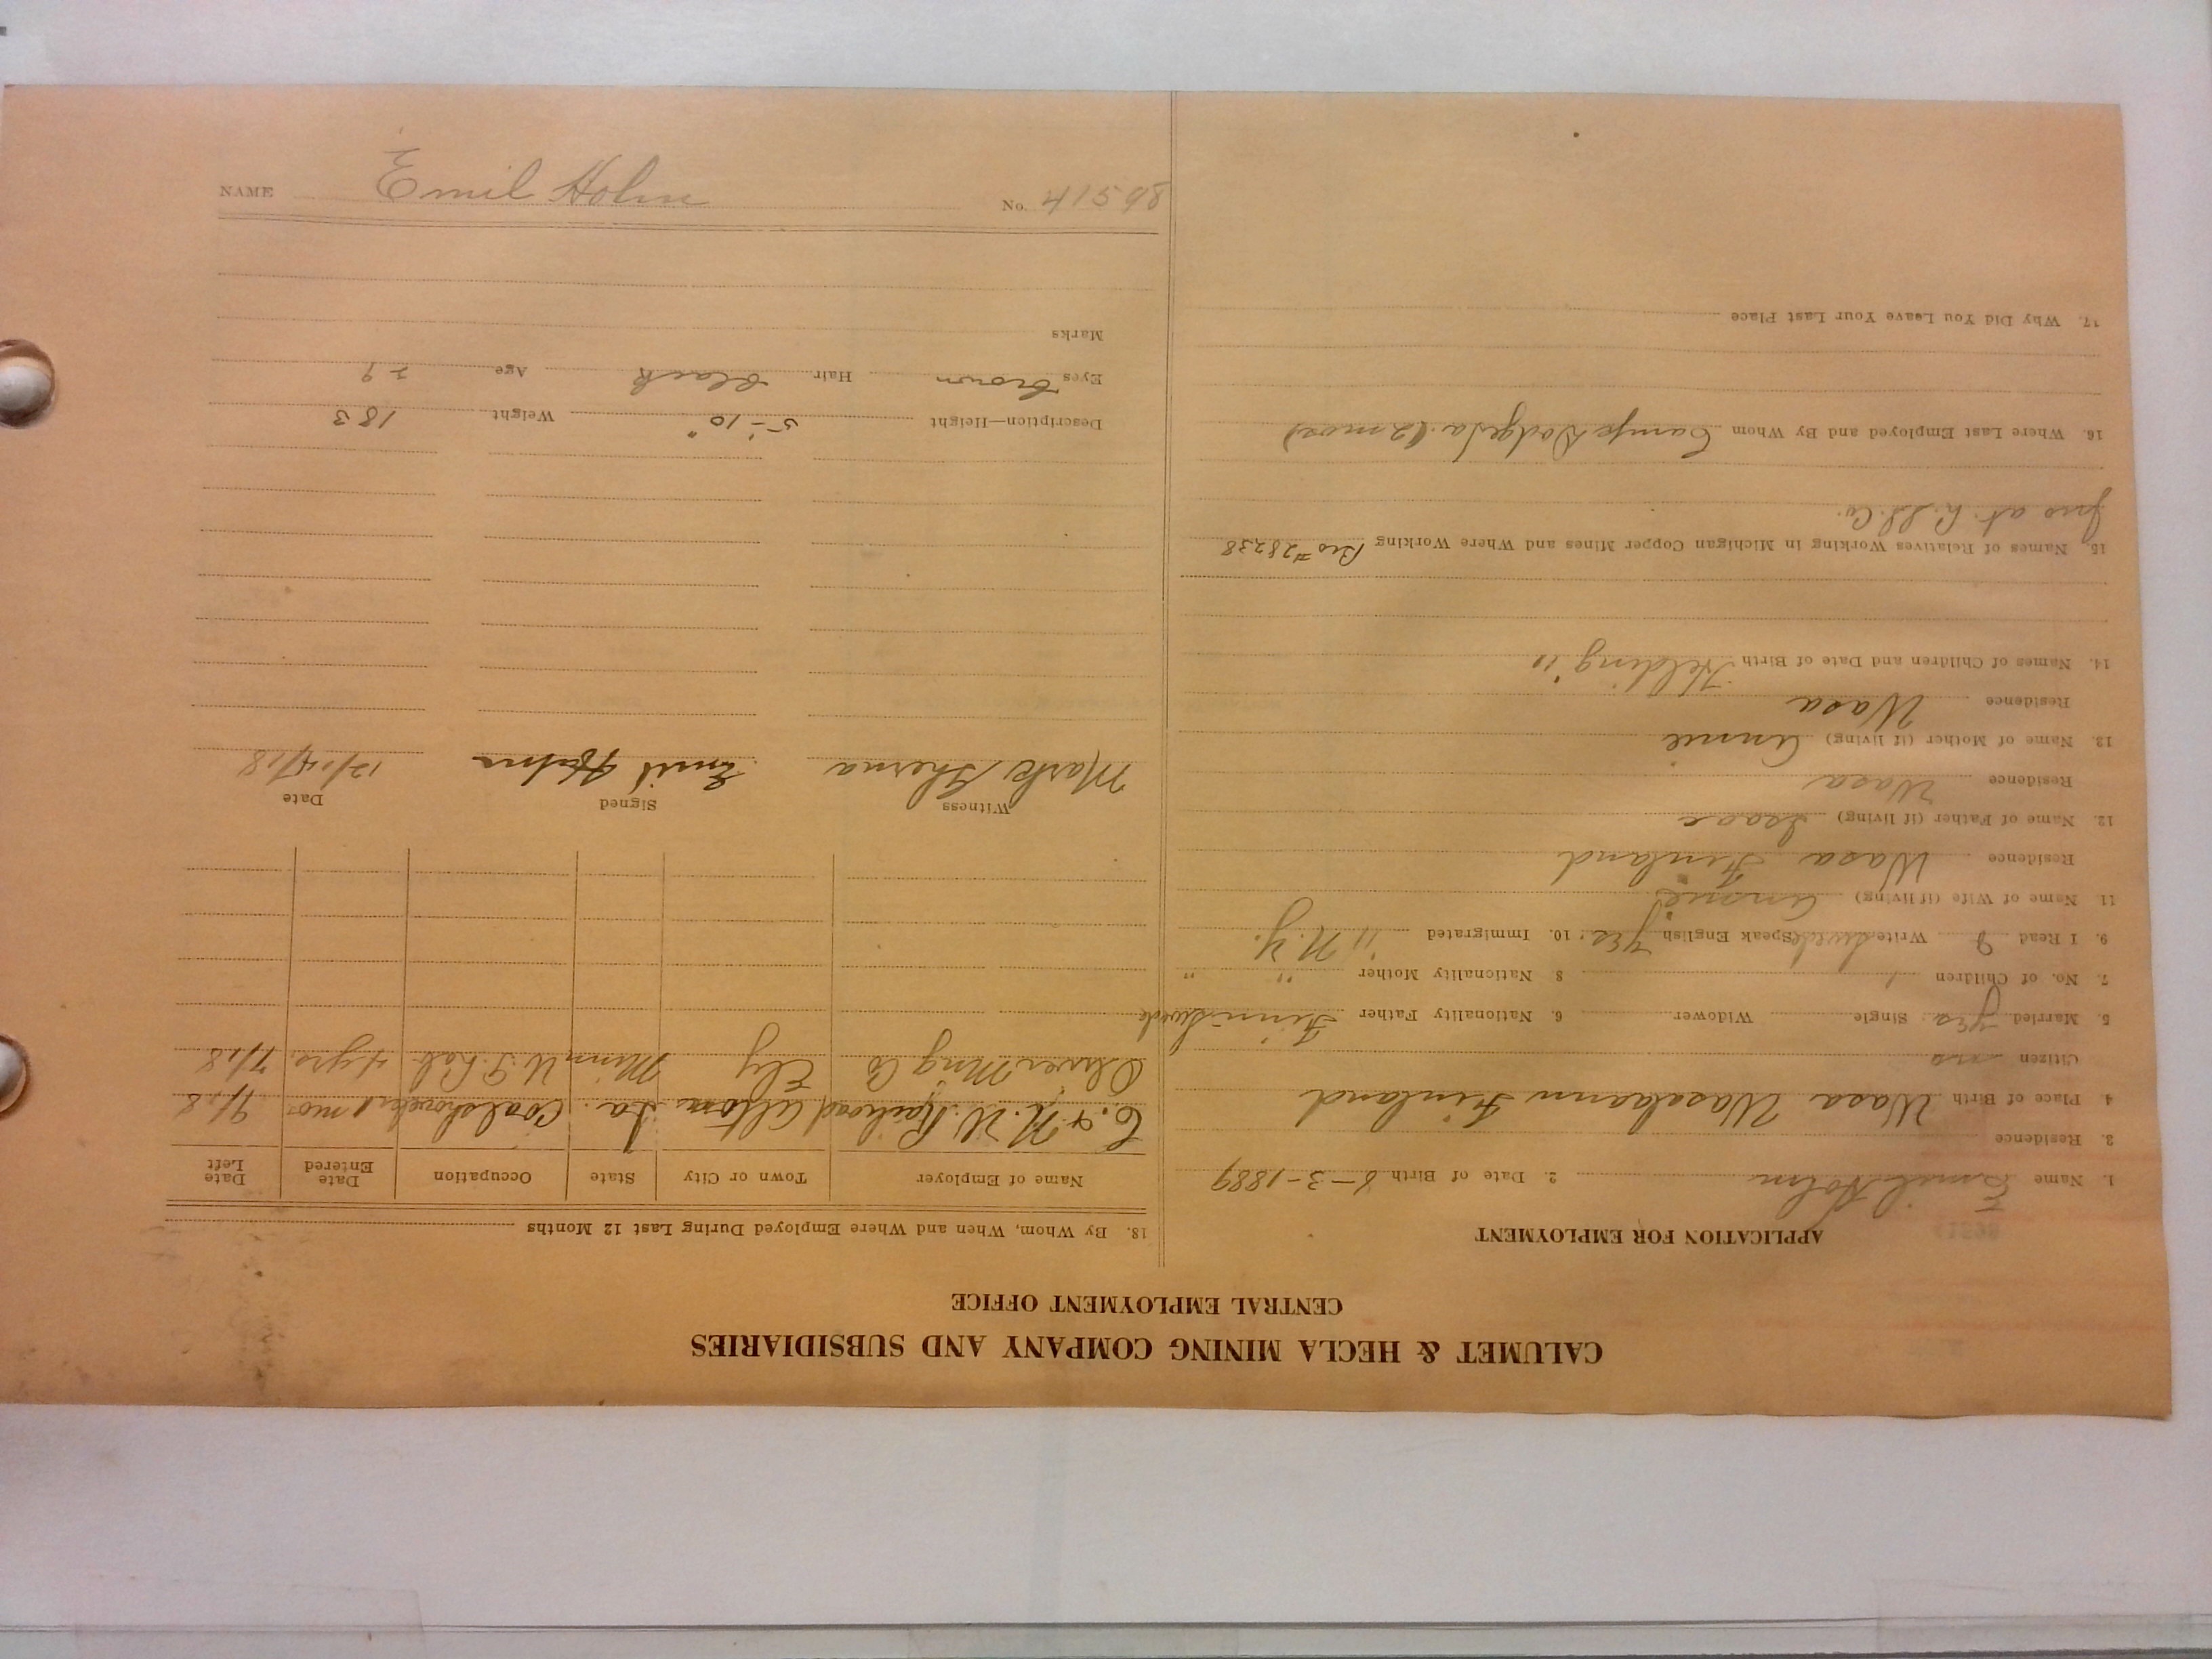 CALUMET & HECLA MINING COMPANY AND SUBSIDIARIES
CENTRAL EMPLOYMENT OFFICE
APPLICATION FOR EMPLOYMENT
1. Name Emil Holm 2. Date of Birth 8-3-1889
3. Residence
4. Place of Birth Wasa Wasalaann Finland
Citizen no
5. Married yes Single Widower 6. Nationality Father Finn-Swede
7. No. of Children 1 8 Nationality Mother " "
9. I Read & Write Swede Speak English yes. 10. Immigrated '11 N.Y.
11. Name of Wife (if living) Annie
Residence Wasa Finland
12. Name of Father (if living) Isaac
Residence Wasa
13. Name of Mother (if living) Annie
Residence Wasa
14. Names of Children and Date of Birth Helding '11
15. Names of Relatives Working in Michigan Copper Mines and Where Working Bro #28238
Jno at C. & H. Co.
16. Where Last Employed and By Whom Camp Dodge Ia. (2 mos)
17. Why Did You Leave Your Last Place
18. By Whom, When and Where Employed During Last 12 Months
Name of Employer Town or City State Occupation Date Entered Date Left
C. & N. W. Railroad Ia. Coalshoveler 1 mo. 9/18
Oliver Mng Co Ely Minn U. G. Lab. 4 yrs. 7/18
Witness Signed Date
Mark Emil Holm 12/14/18
Description—Height 5'-10" Weight 183
Eyes brown Hair black Age 29
Marks
NAME Emil Holm No. 41598